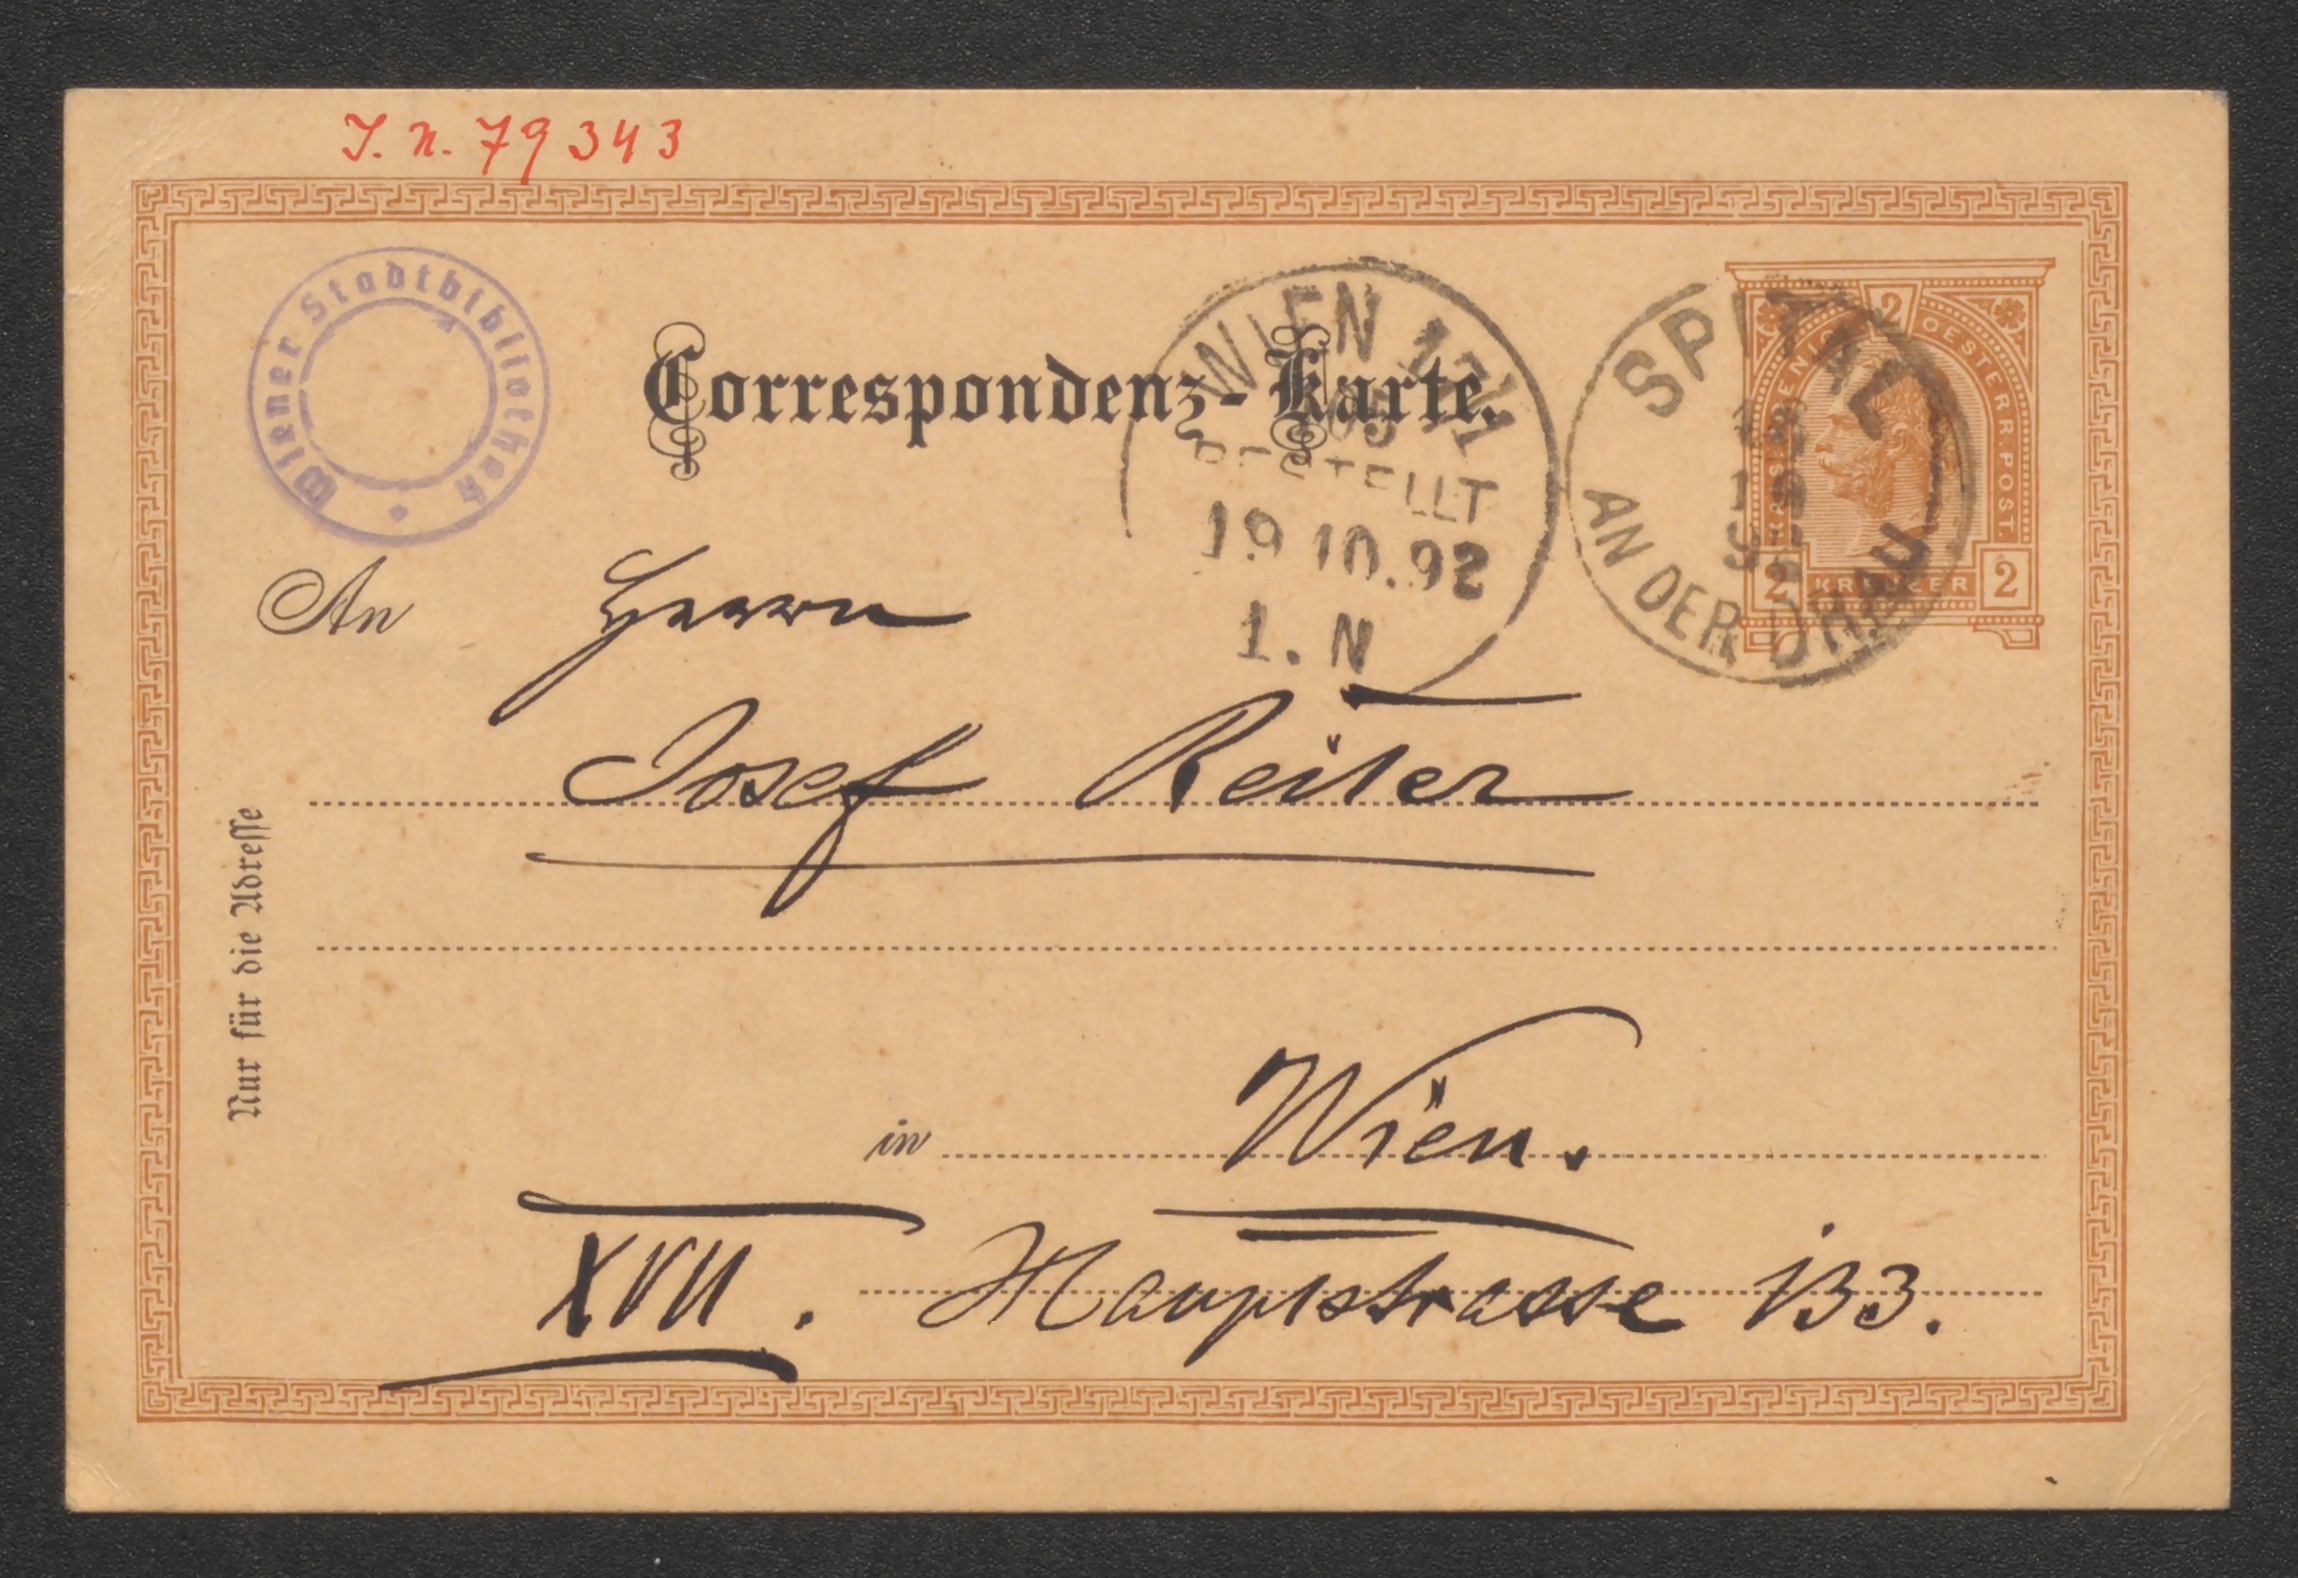 I. N. 79343
Wiener Stadtbibliothek
Correspondenz-Karte.
WIEN 17/1
BESTELLT
19 10.92
1. N
SPITTAL
18
10
92
AN DER DRAU
2
KAIS. KOENIGL. OESTERR. POST
2 KREUZER 2
An Herrn
Josef Reiter
Nur für die Adresse
in Wien.
XVII. Hauptstrasse 133.